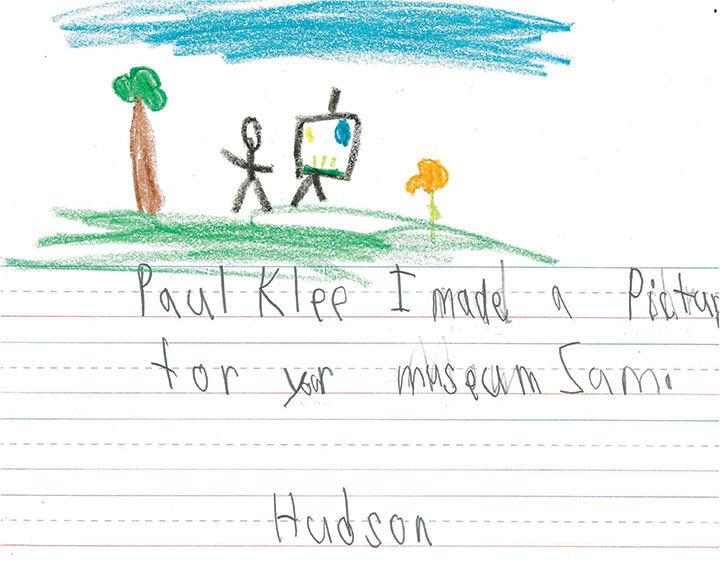 Paul Klee I made a Pictur
for yor museum Sam.
Hudson